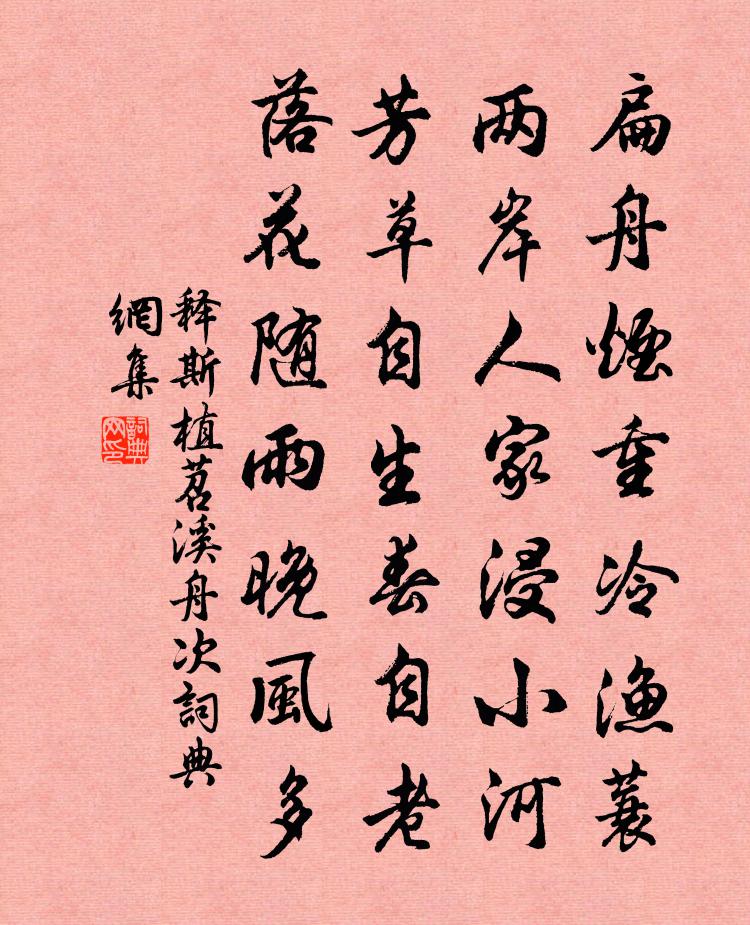 扁舟煙重冷渔蓑
两岸人家浸小河
芳草自生春自老
落花随雨晚風多
释斯植苕溪舟次詞典
網集
詞典
网印